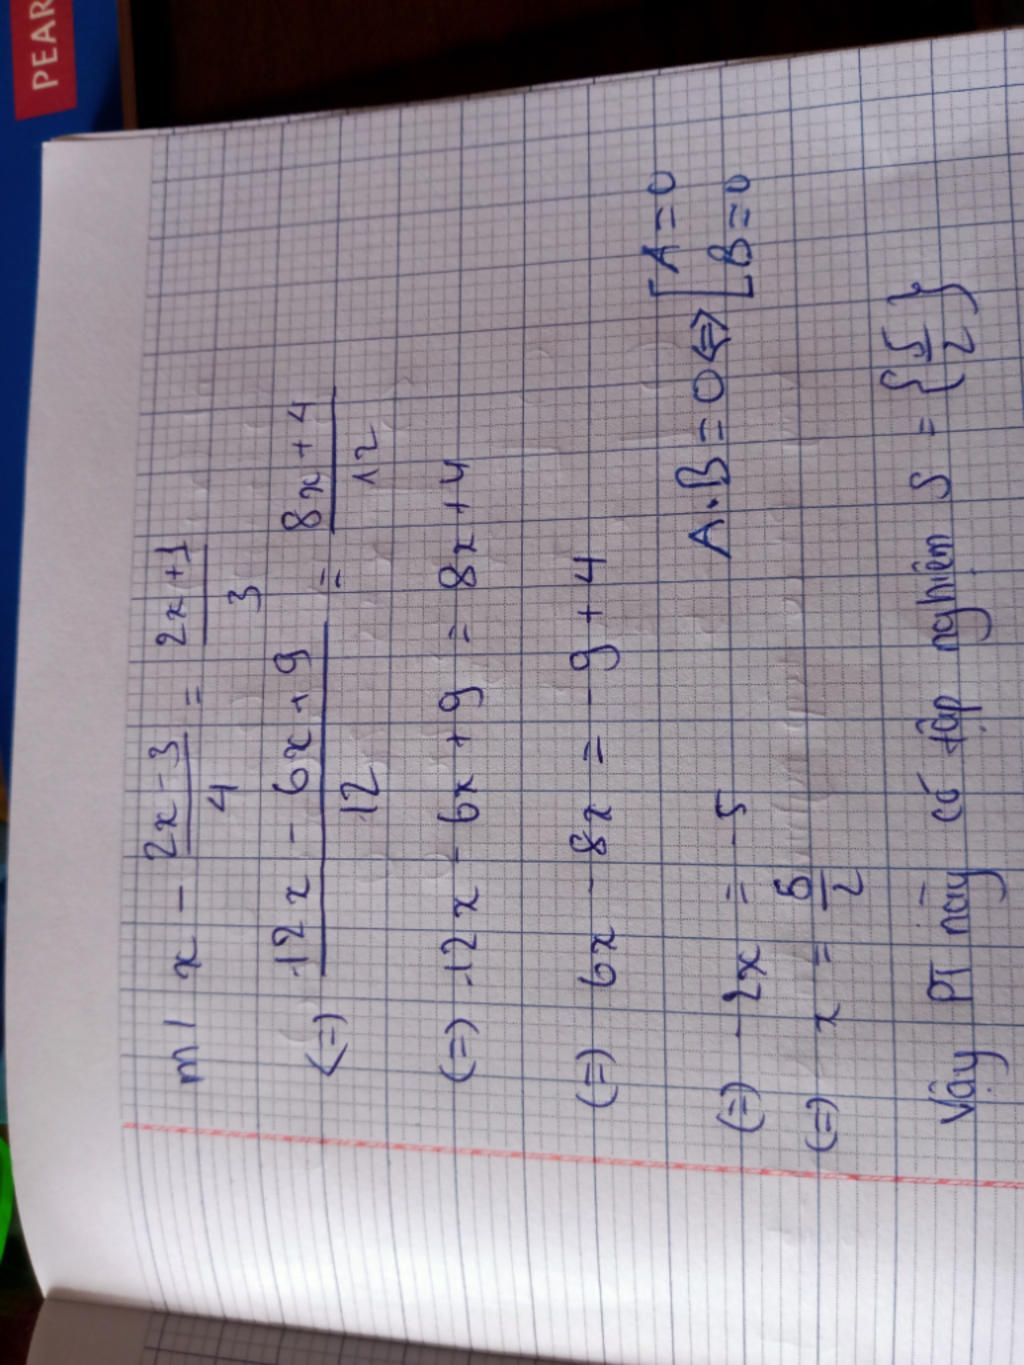 PEAR
m) x - \frac{2x-3}{4} = \frac{2x+1}{3}
(=) \frac{12x - 6x + 9}{12} = \frac{8x+4}{12}
(=) 12x - 6x + 9 = 8x + 4
(=) 6x - 8x = - 9 + 4
(=) - 2x = - 5
A.B = 0 <=> [ A = 0
B = 0
(=) x = \frac{5}{2}
Vậy PT này có tập nghiệm S = {\frac{5}{2}}